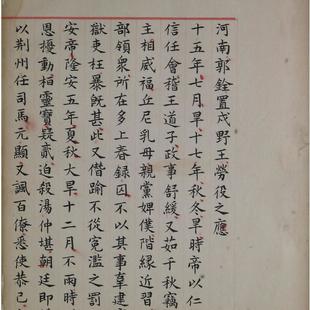 河南郭銓置戍野王勞役之應
十五年七月旱十七年秋冬旱時帝以仁
信任會稽王道子政事舒緩又茹千秋竊
主相威福丘尼乳母親黨婢僕階緣近習
部領衆所在多上春録囚不以其辜建
獄吏枉暴旣甚此又僭踰不從寃濫之罰
安帝隆安五年夏秋大旱十二月不雨時
恩擾動桓靈寶疑貳迫殺湯仲堪朝廷即
以荆州任司馬元顯又諷百僚悉使恭己